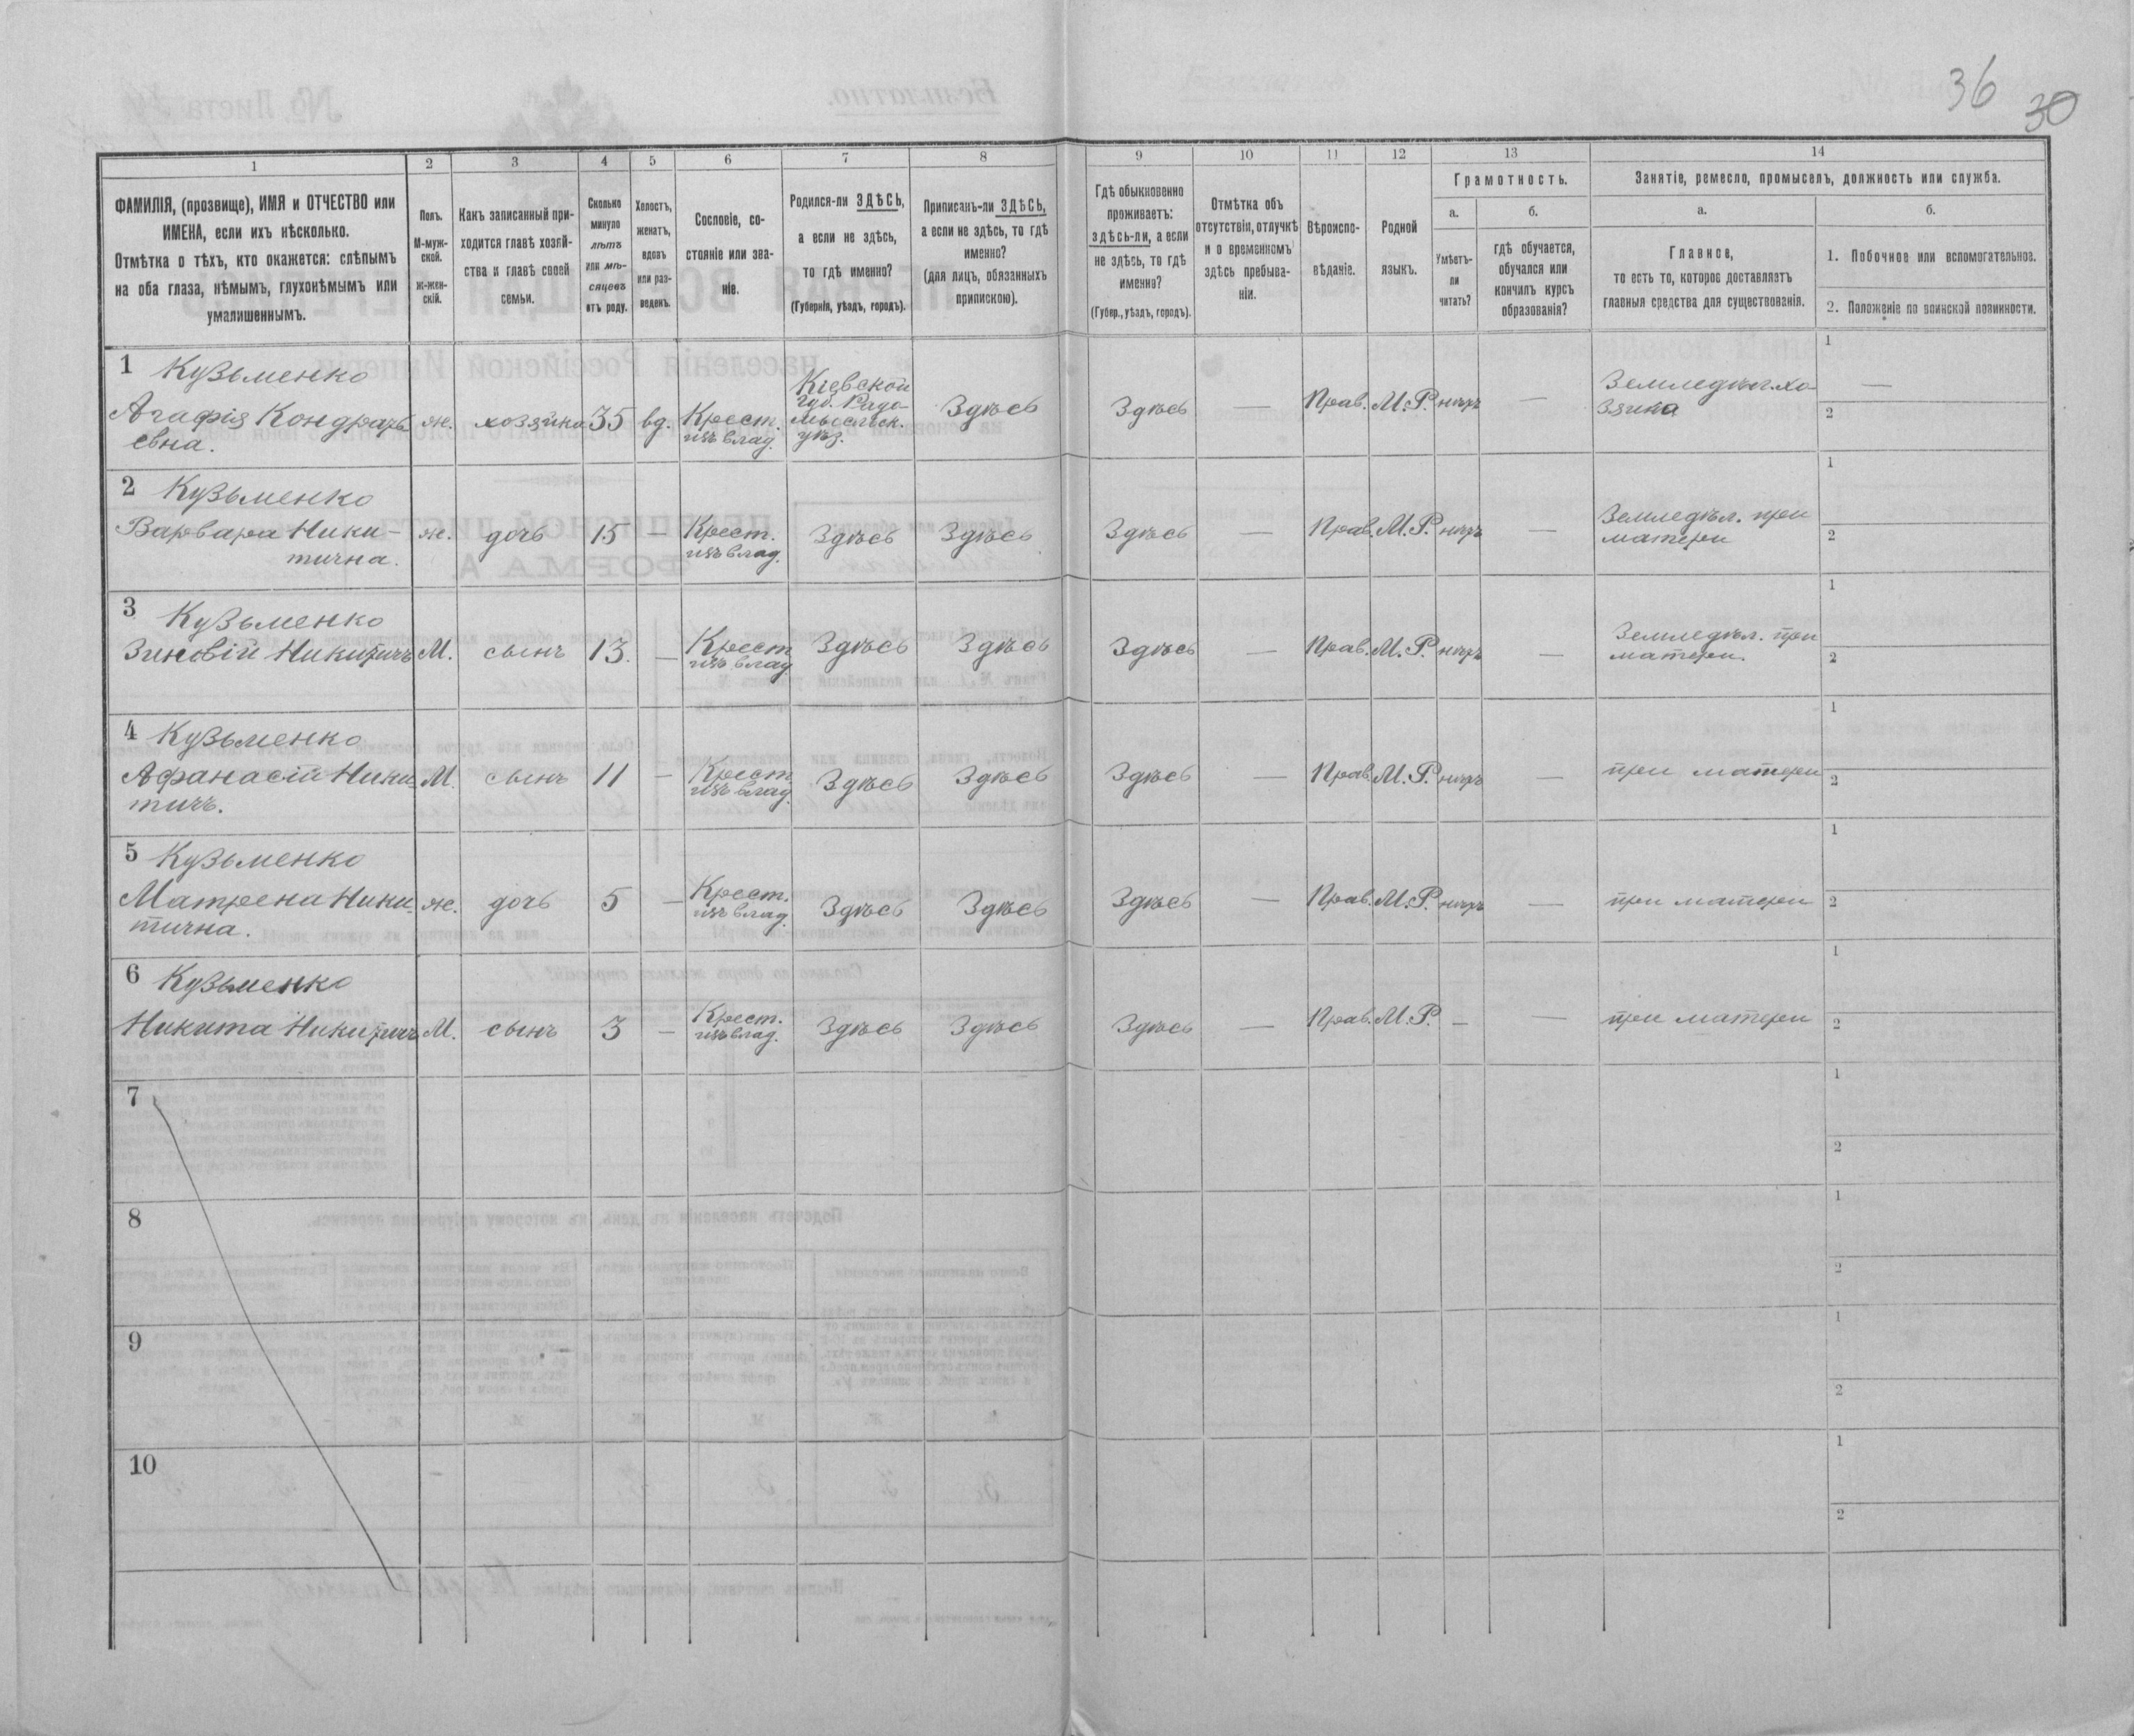 36
30
1
2
3
4
5
6
7
8
9
10
11
12
13
14
ФАМИЛІЯ, (прозвище), ИМЯ и ОТЧЕСТВО или
ИМЕНА, если ихъ нѣсколько.
Отмѣтка о тѣхъ, кто окажется: слѣпымъ
на оба глаза, нѣмымъ, глухонѣмымъ или
умалишеннымъ.
Полъ.
М-муж-
ской.
Ж-жен-
скій.
Какъ записанный при-
ходится главѣ хозяй-
ства и главѣ своей
семьи.
Сколько
минуло
лѣтъ
или мѣ-
сяцевъ
отъ роду.
Холостъ,
женатъ,
вдовъ
или раз-
веденъ.
Сословіе, со-
стояніе или зва-
ніе.
Родился-ли ЗДѢСЬ,
а если не здѣсь,
то гдѣ именно?
(Губернія, уѣздъ, городъ).
Приписанъ-ли ЗДѢСЬ,
а если не здѣсь, то гдѣ
именно?
(для лицъ, обязанныхъ
припискою).
Гдѣ обыкновенно
проживаетъ:
здѣсь-ли, а если
не здѣсь, то гдѣ
именно?
(Губер., уѣздъ, городъ).
Отмѣтка объ
отсутствіи, отлучкѣ
и о временномъ
здѣсь пребыва-
ніи.
Вѣроиспо-
вѣданіе.
Родной
языкъ.
Грамотность.
а.
Умѣетъ-
ли
читать?
б.
гдѣ обучается,
обучался или
кончилъ курсъ
образованія?
Занятіе, ремесло, промыселъ, должность или служба.
а.
Главное,
то есть то, которое доставляетъ
главныя средства для существованія.
б.
1. Побочное или вспомогательное.
2. Положеніе по воинской повинности.
1 Кузьменко
Агафія Кондратъ
евна.
ж.
хозяйка
35
вд.
Крест.
изъ влад.
Кіевской
губ. Радо-
мысльск.
уѣз.
Здѣсь
Здѣсь
—
Прав.
М.Р.
нѣтъ
—
Земледѣл. хо-
зяйка
1 —
2
2 Кузьменко
Варвара Ники-
тична.
ж.
дочь
15
—
Крест.
изъ влад.
Здѣсь
Здѣсь
Здѣсь
—
Прав.
М.Р.
нѣтъ
—
Земледѣл. при
матери
1
2
3 Кузьменко
Зиновій Никитичъ
М.
сынъ
13.
—
Крест
изъ влад
Здѣсь
Здѣсь
Здѣсь
—
Прав.
М.Р.
нѣтъ
—
Земледѣл. при
матери.
1
2
4 Кузьменко
Афанасій Ники-
тичъ.
М.
сынъ
11
—
Крест
изъ влад.
Здѣсь
Здѣсь
Здѣсь
—
Прав.
М.Р.
нѣтъ
—
при матери
1
2
5 Кузьменко
Матрена Ники-
тична.
ж.
дочь
5
—
Крест.
изъ влад.
Здѣсь
Здѣсь
Здѣсь
—
Прав.
М.Р.
нѣтъ
—
при матери
1
2
6 Кузьменко
Никита Никитичъ
М.
сынъ
3
—
Крест.
изъ влад.
Здѣсь
Здѣсь
Здѣсь
—
Прав.
М.Р.
—
—
при матери
1
2
7
1
2
8
1
2
9
1
2
10
1
2